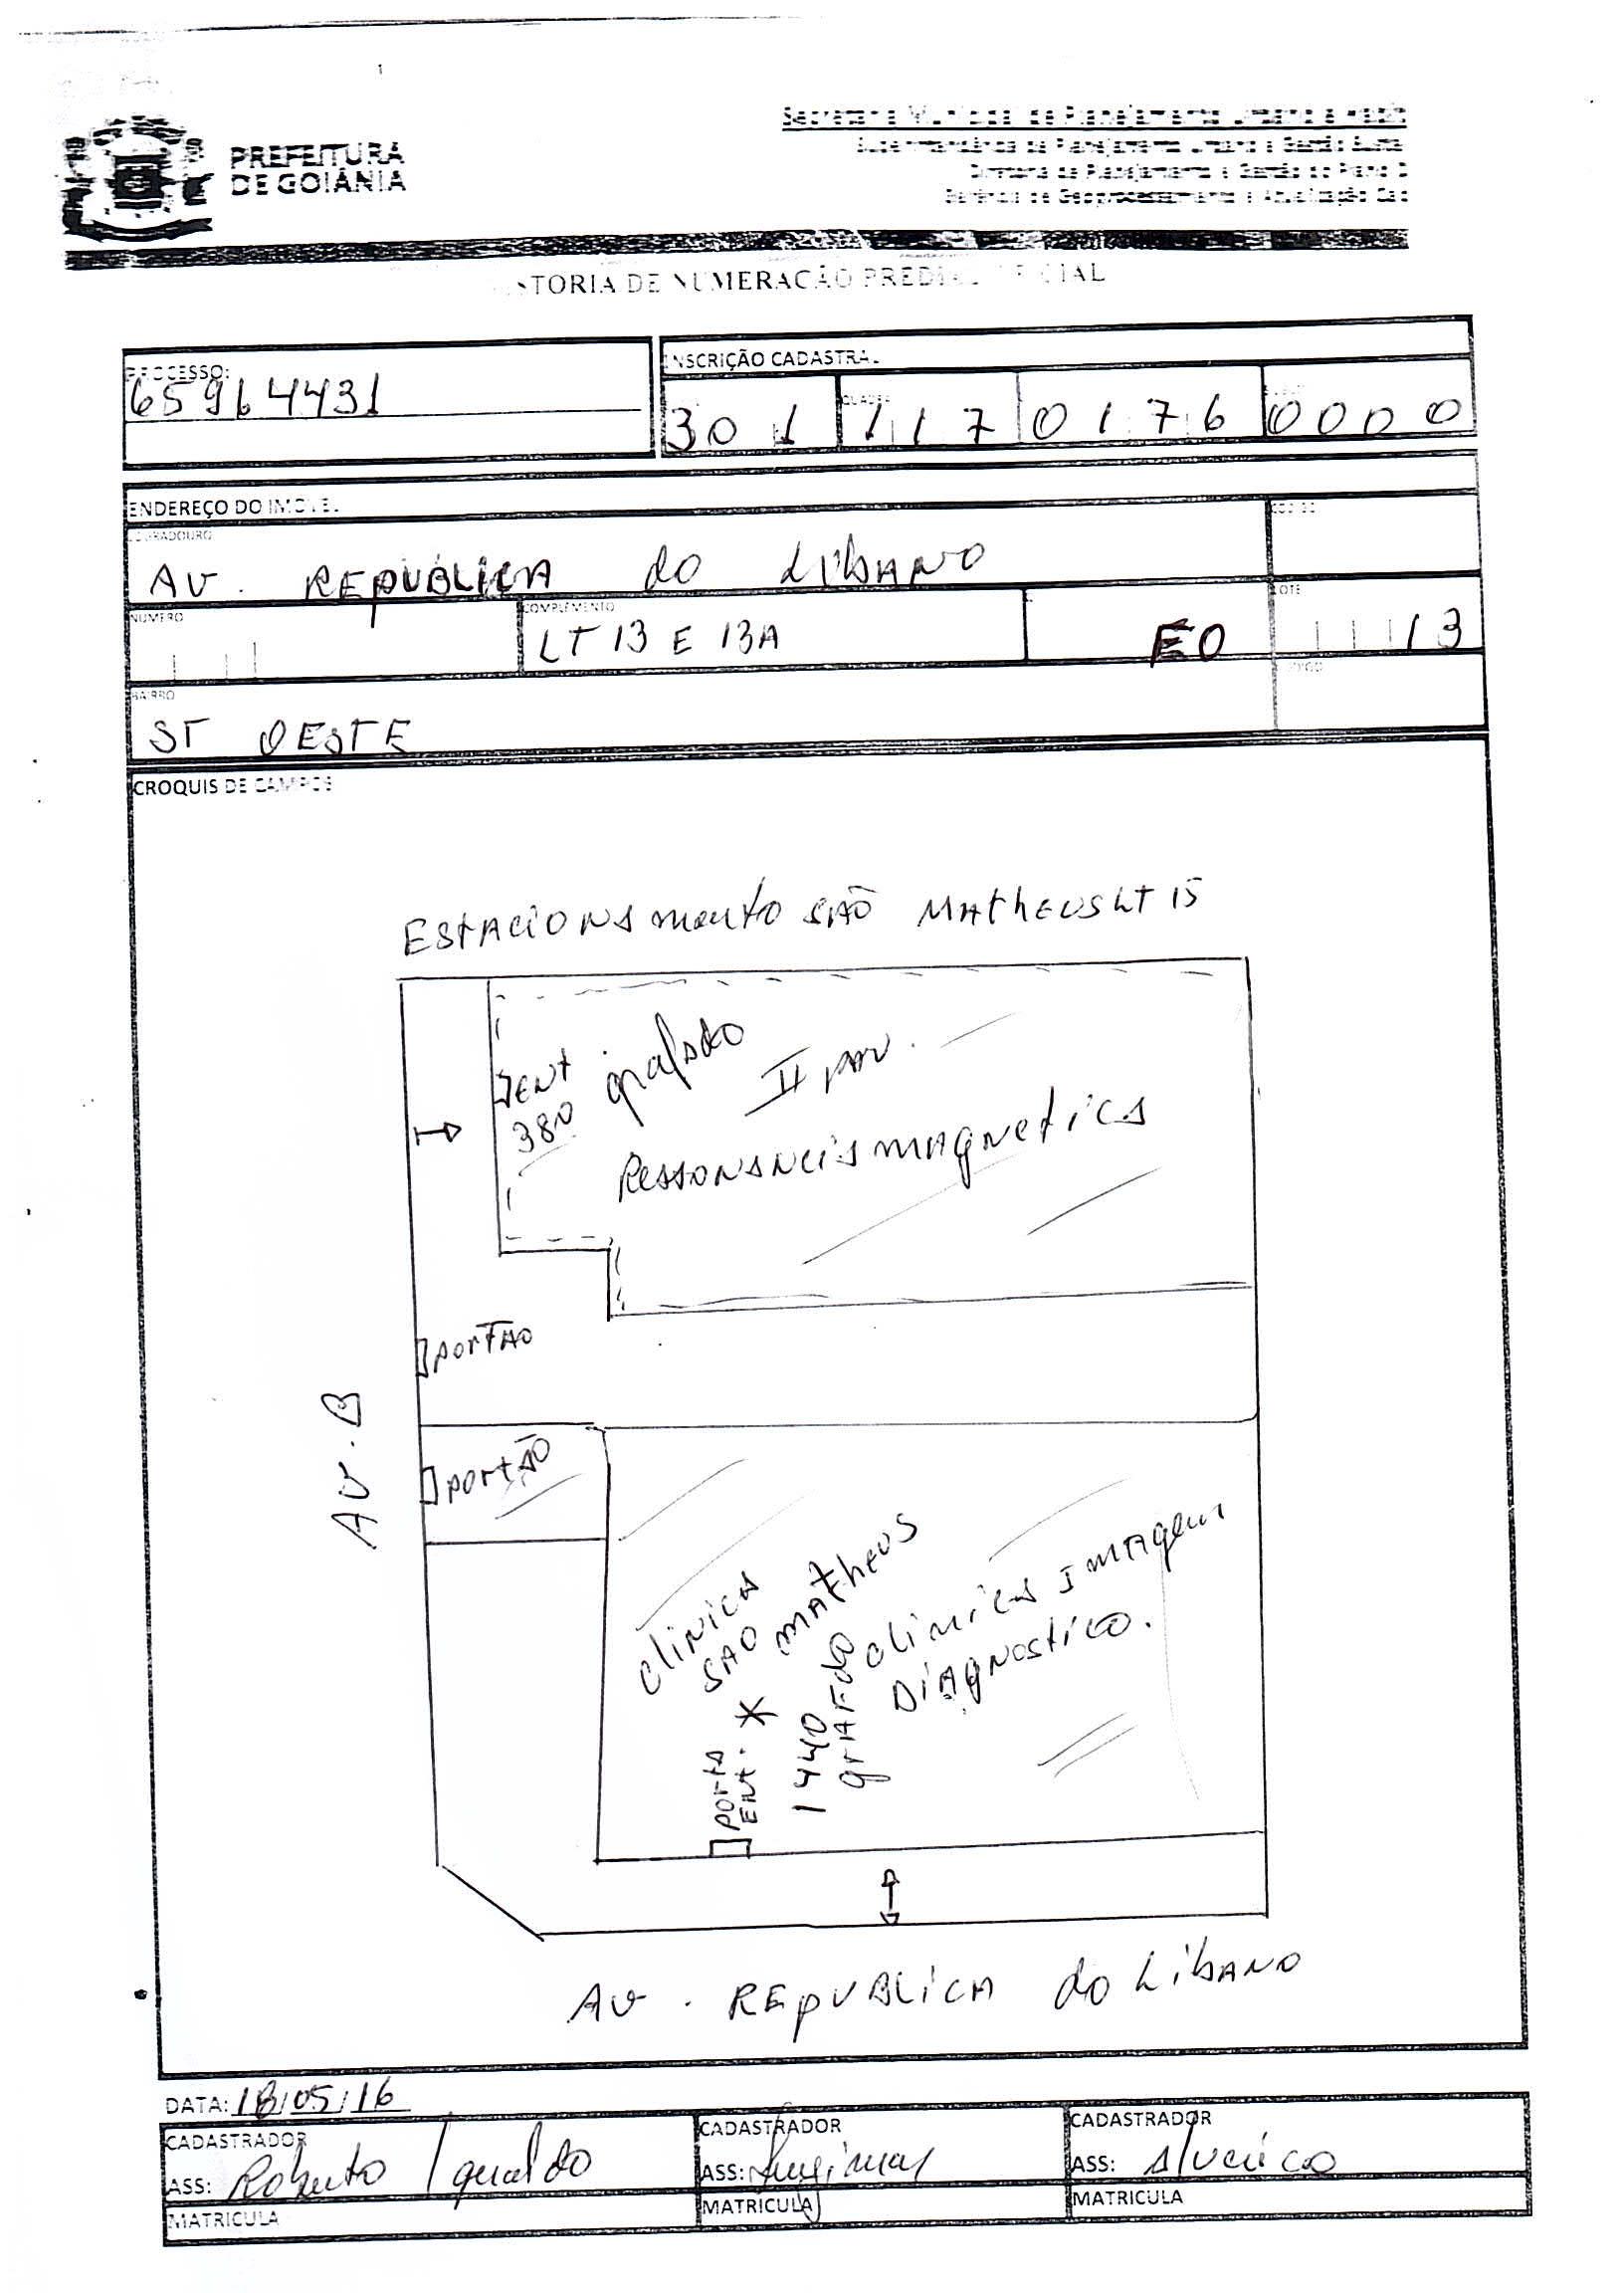 PREFEITURA
DE GOIÂNIA
Secretaria Municipal de Planejamento Urbano e
Superintendência de Planejamento Urbano e Gestão
Diretoria de Planejamento e Gestão do Plano D
Gerência de Geoprocessamento e Atualização Cad
STORIA DE NUMERAÇÃO PREDIAL OFICIAL
PROCESSO:
65964431
INSCRIÇÃO CADASTRAL
QUADRA
301 117 0176 0000
ENDEREÇO DO IMÓVEL
LOGRADOURO
CÓDIGO
AV. REPÚBLICA do LIBANO
NÚMERO
COMPLEMENTO
LT 13 E 13A
E0
LOTE
13
BAIRRO
CÓDIGO
ST OESTE
CROQUIS DE CAMPOS
ESTACIONAmento SÃO MAtheus Lt 15
ENt
380
grafado
II pav.
Ressonancia magnetica
portão
AV. B
portão
clinica
SAO matheus
clinica Imagem
Diagnostico.
1440
grAFado
porta
Ent. *
AV. REpUBLiCA do Libano
DATA: 18/05/16
CADASTRADOR
ASS: Roberto
MATRICULA
CADASTRADOR
ASS:
MATRICULA
CADASTRADOR
ASS:
MATRICULA